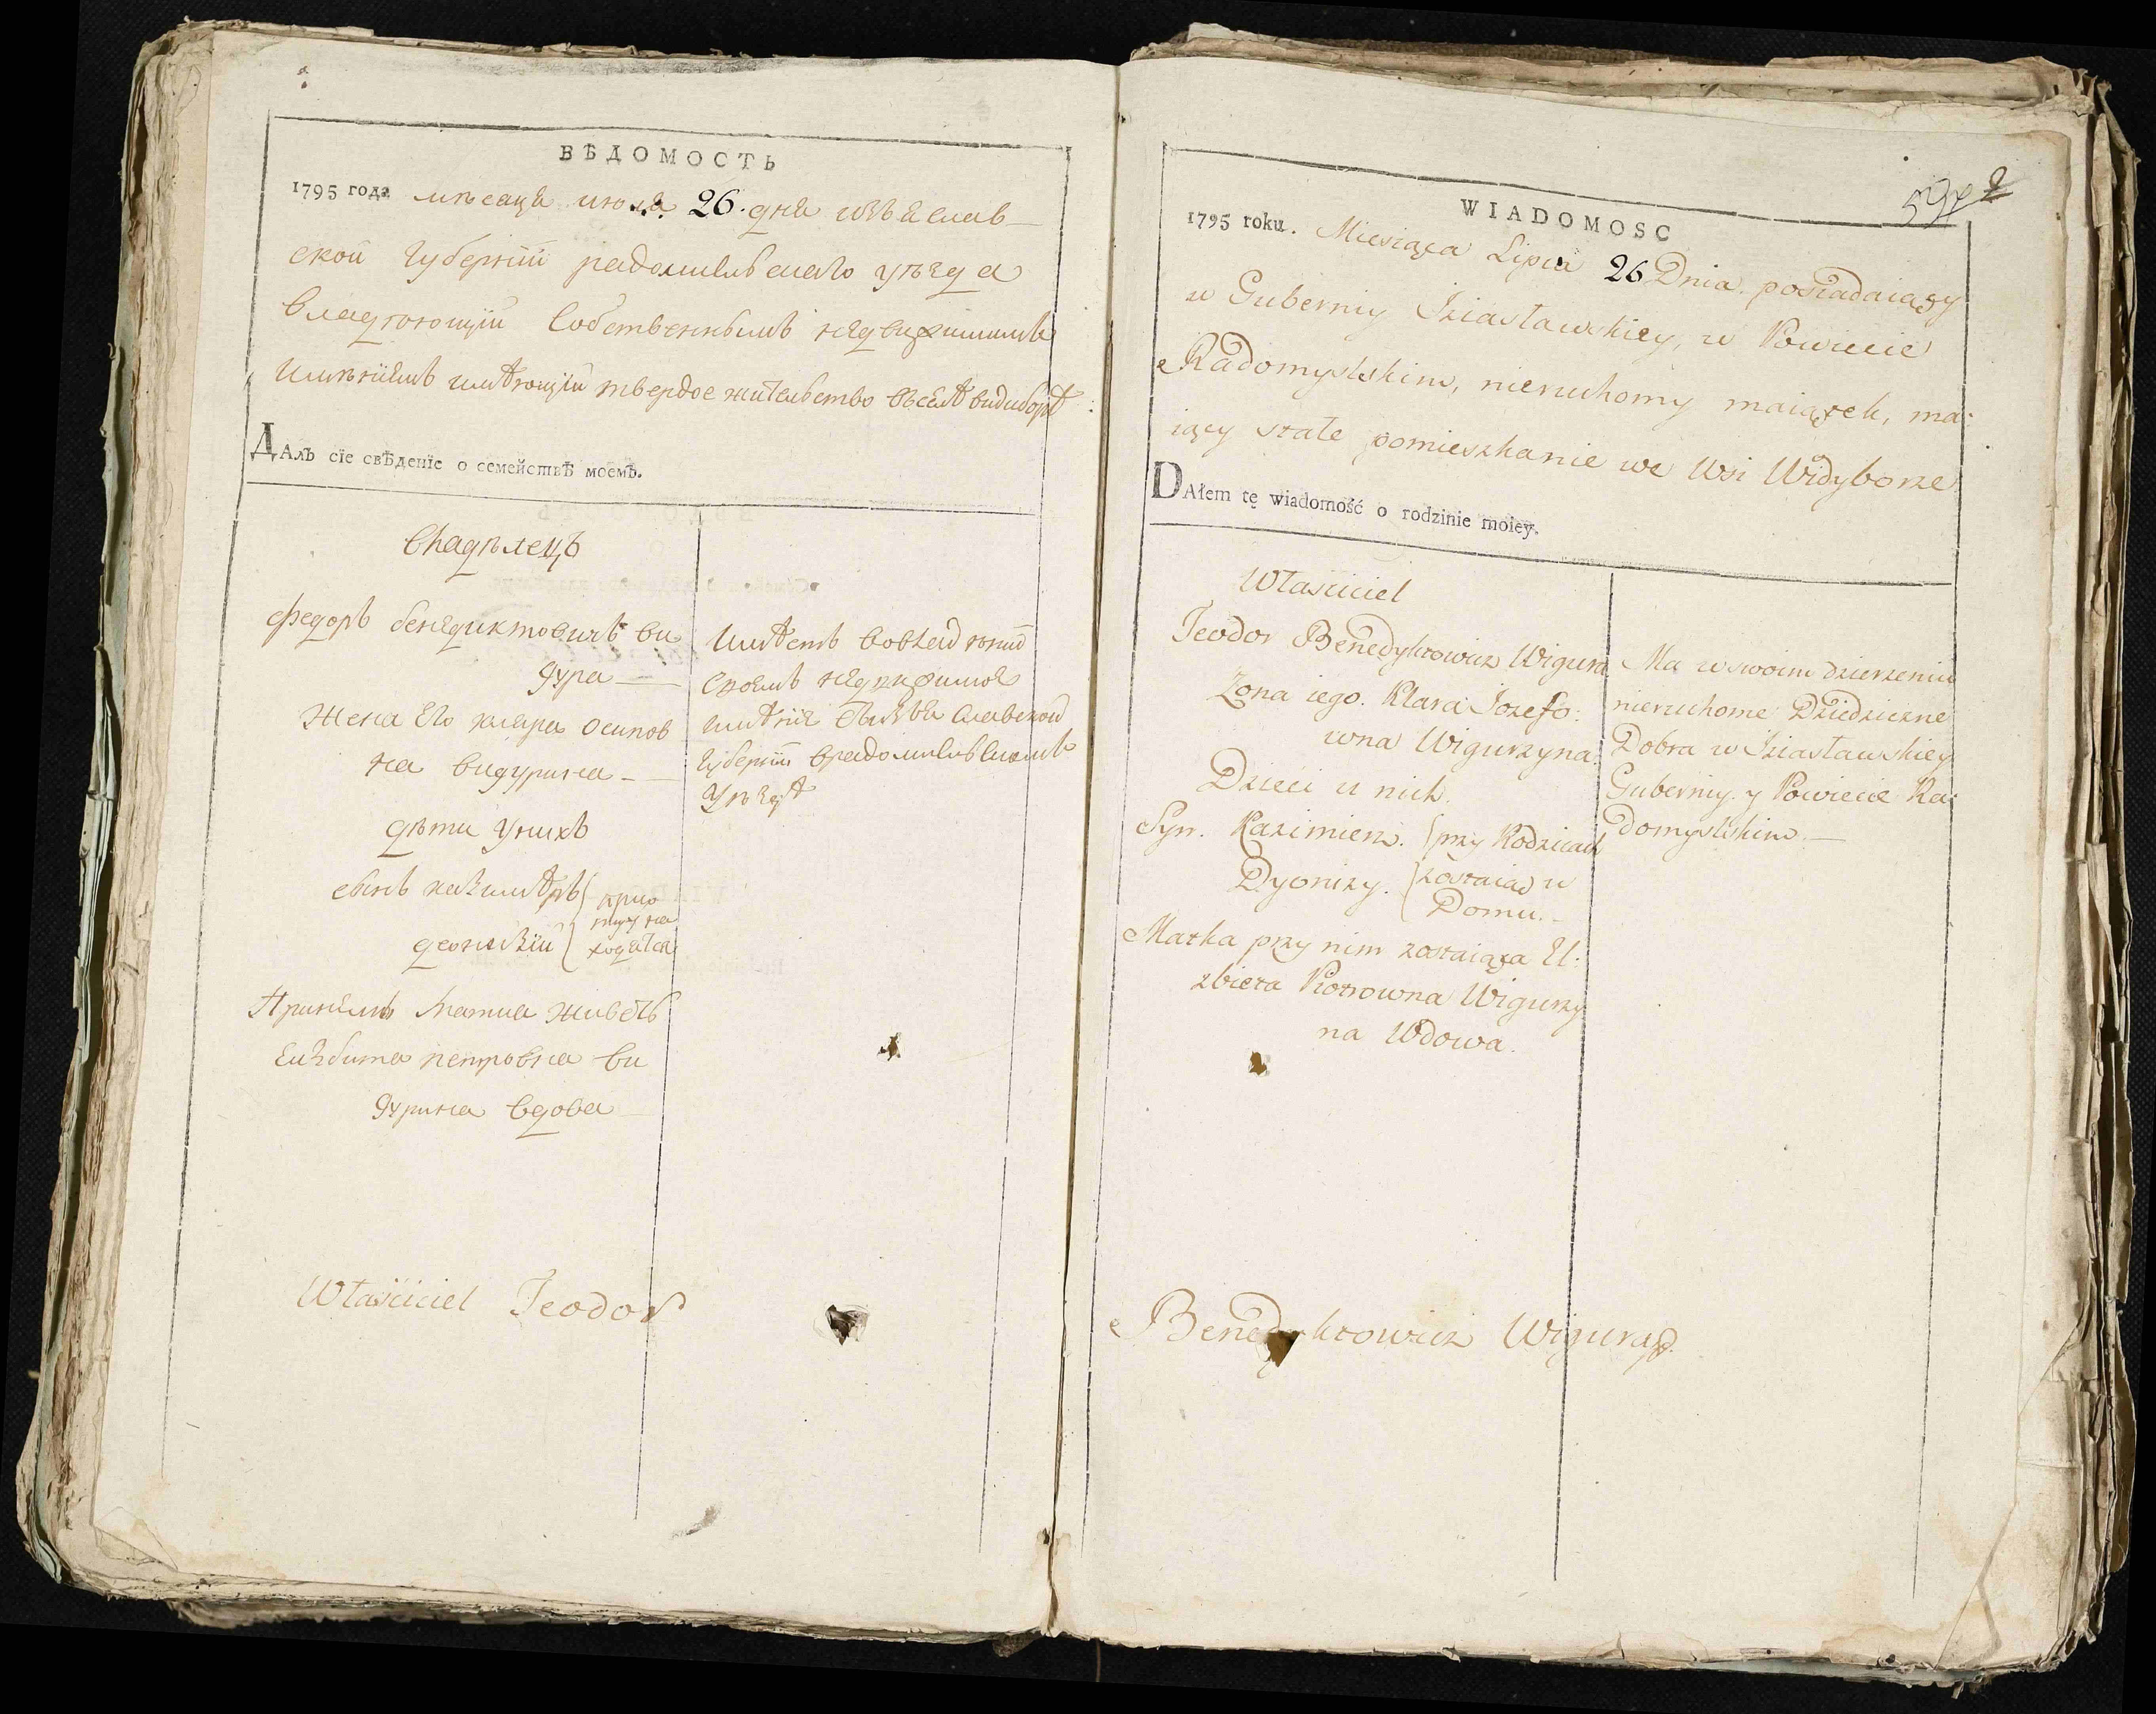 ВѢДОМОСТЬ
1795 года мѣсяца июля 26. дня изъяслав
ской губернїи радомисльскаго уѣзда
владѣющїй собственнымъ недвижимымъ
имѣнїемъ имѣющїй твердое жителство въселѣ видиборѣ
ДАлъ сїе свѣденїе о семействѣ моемъ.
владѣлецъ
Федоръ бенедиктовичъ ви
гура
жена его клара осипов
на вигурина
дѣти у нихъ
сынъ казимѣръ
деонизїй
принемъ матка живетъ
елзбита петровна ви
гурина вдова
имѣетъ вовладѣнїи
своемъ недвижимое
имѣнїе славской
губернїи врадомисльскомъ
уѣздѣ
Właściciel Teodor
WIADOMOSC
1795 roku. Miesiąca Lipca 26 Dnia. posiadaiący
w Guberniy Iziasławskiey, w Powiecie
Radomyslskim, nieruchomy maiątek, ma:
iący stałe pomieszkanie we Wsi Widyborze
DAłem tę wiadomość o rodzinie moiey.
Właściciel
Teodor Benedyktowicz Wigura
Zona iego. Klara Jozefo:
wna Wigurzyna.
Dzieci u nich.
Syn. Kazimierz. przy Rodzicach
Dyonizy. zostaią w
Domu.
Matka przy nim zostaiąca El:
zbieta Piotrowna Wigurzy
na Wdowa.
Ma w swoim dzierzeniu
nieruchome Dziedziczne
Dobra w Iziasławskiey
Guberniy. y Powiecie Ra:
domyslskim.
Benedyktowicz Wigura